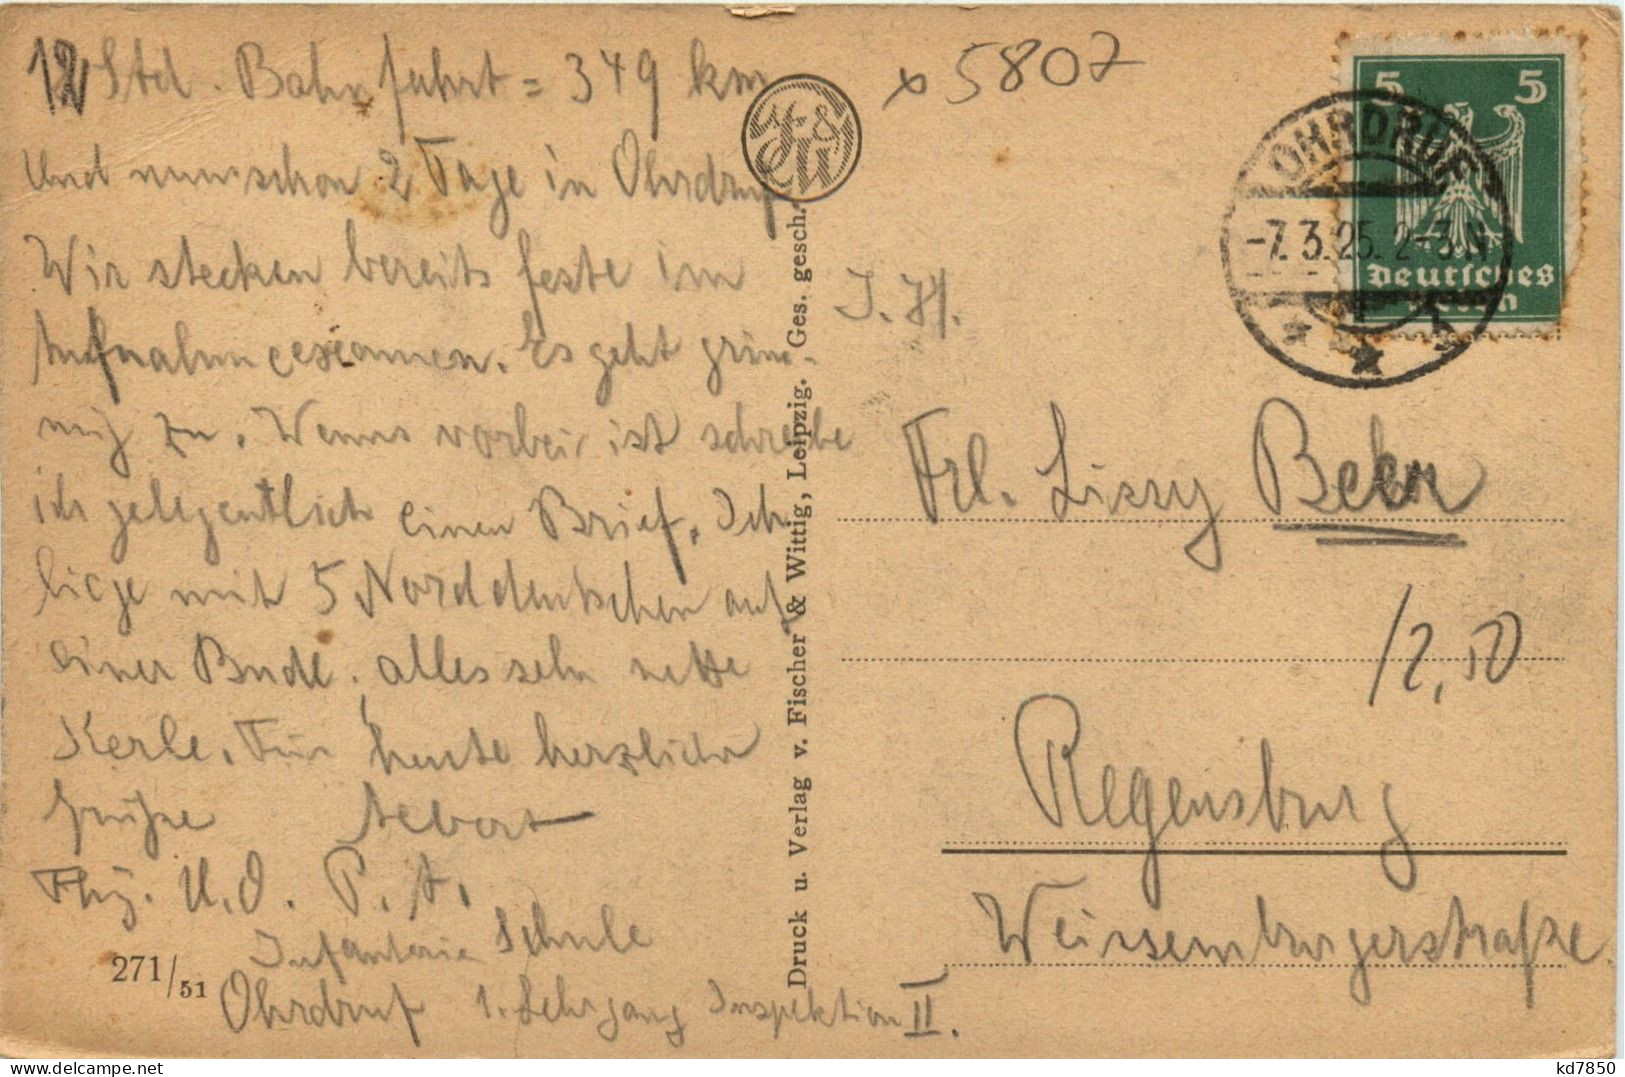 12 Std. Bahnfahrt = 349 km
Und nun schon 2 Tage in Ohrdruf
Wir stecken bereits feste im
Aufnahmeexamen. Es geht grim-
mig zu. Wenns vorbei ist schreibe
ich gelegentlich einen Brief. Ich
liege mit 5 Norddeutschen auf
einer Bude. alles sehr nette
Kerle. Für heute herzliche
Grüße
Fhj. U.O. P. A.
Infanterie Schule
Ohrdruf 1. Lehrgang Inspektion II.
271/51
Druck u. Verlag v. Fischer & Wittig, Leipzig. Ges. gesch.
F & W
x 5807
5 5
Deutsches
OHRDRUF
-7.3.25. 2-3.N
Frl. Lissy Behr
12,50
Regensburg
Weissenburgerstraße.
kd7850